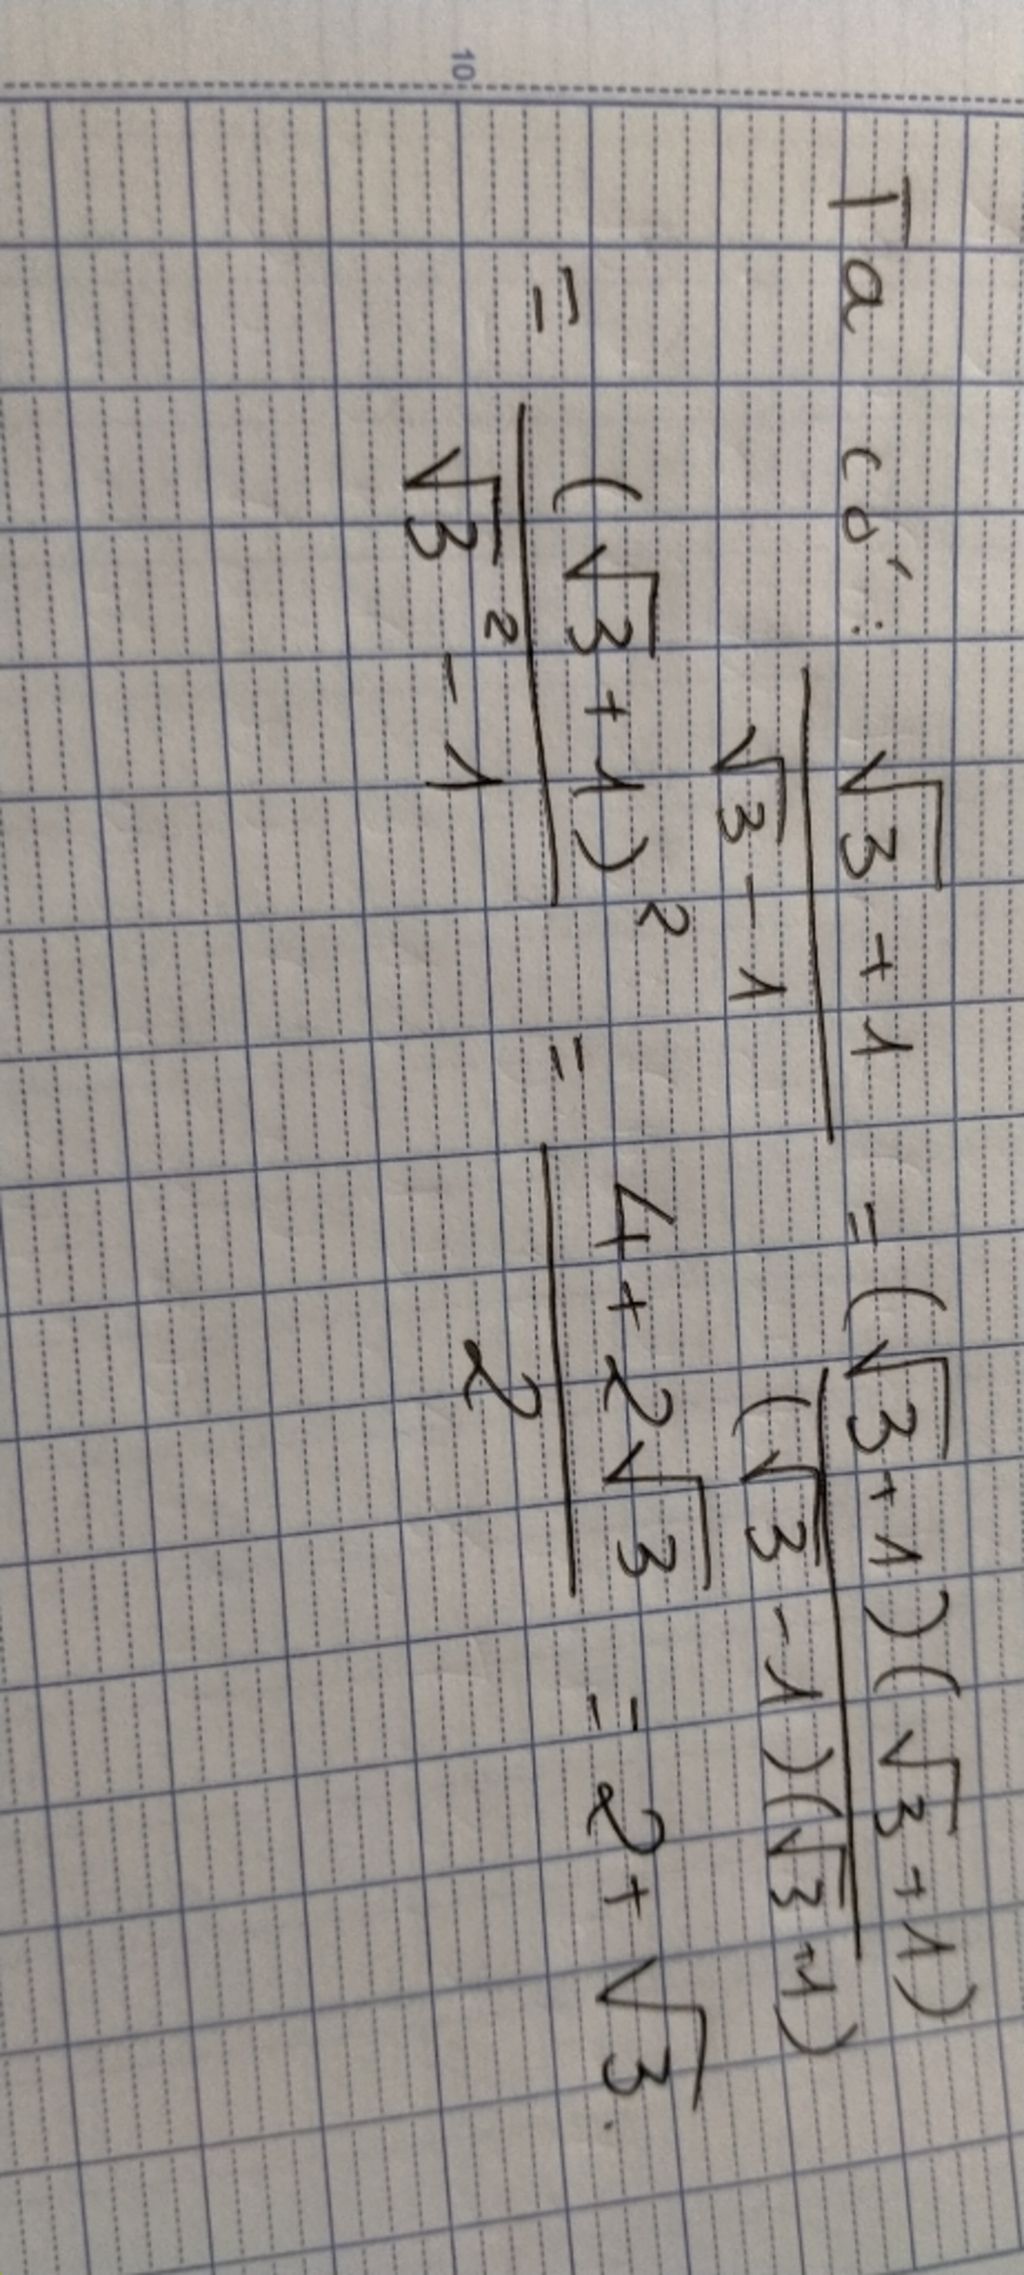 Ta có: \frac{\sqrt{3}+1}{\sqrt{3}-1} = \frac{(\sqrt{3}+1)(\sqrt{3}+1)}{(\sqrt{3}-1)(\sqrt{3}+1)}
= \frac{(\sqrt{3}+1)^2}{\sqrt{3}^2-1} = \frac{4+2\sqrt{3}}{2} = 2+\sqrt{3}.
10